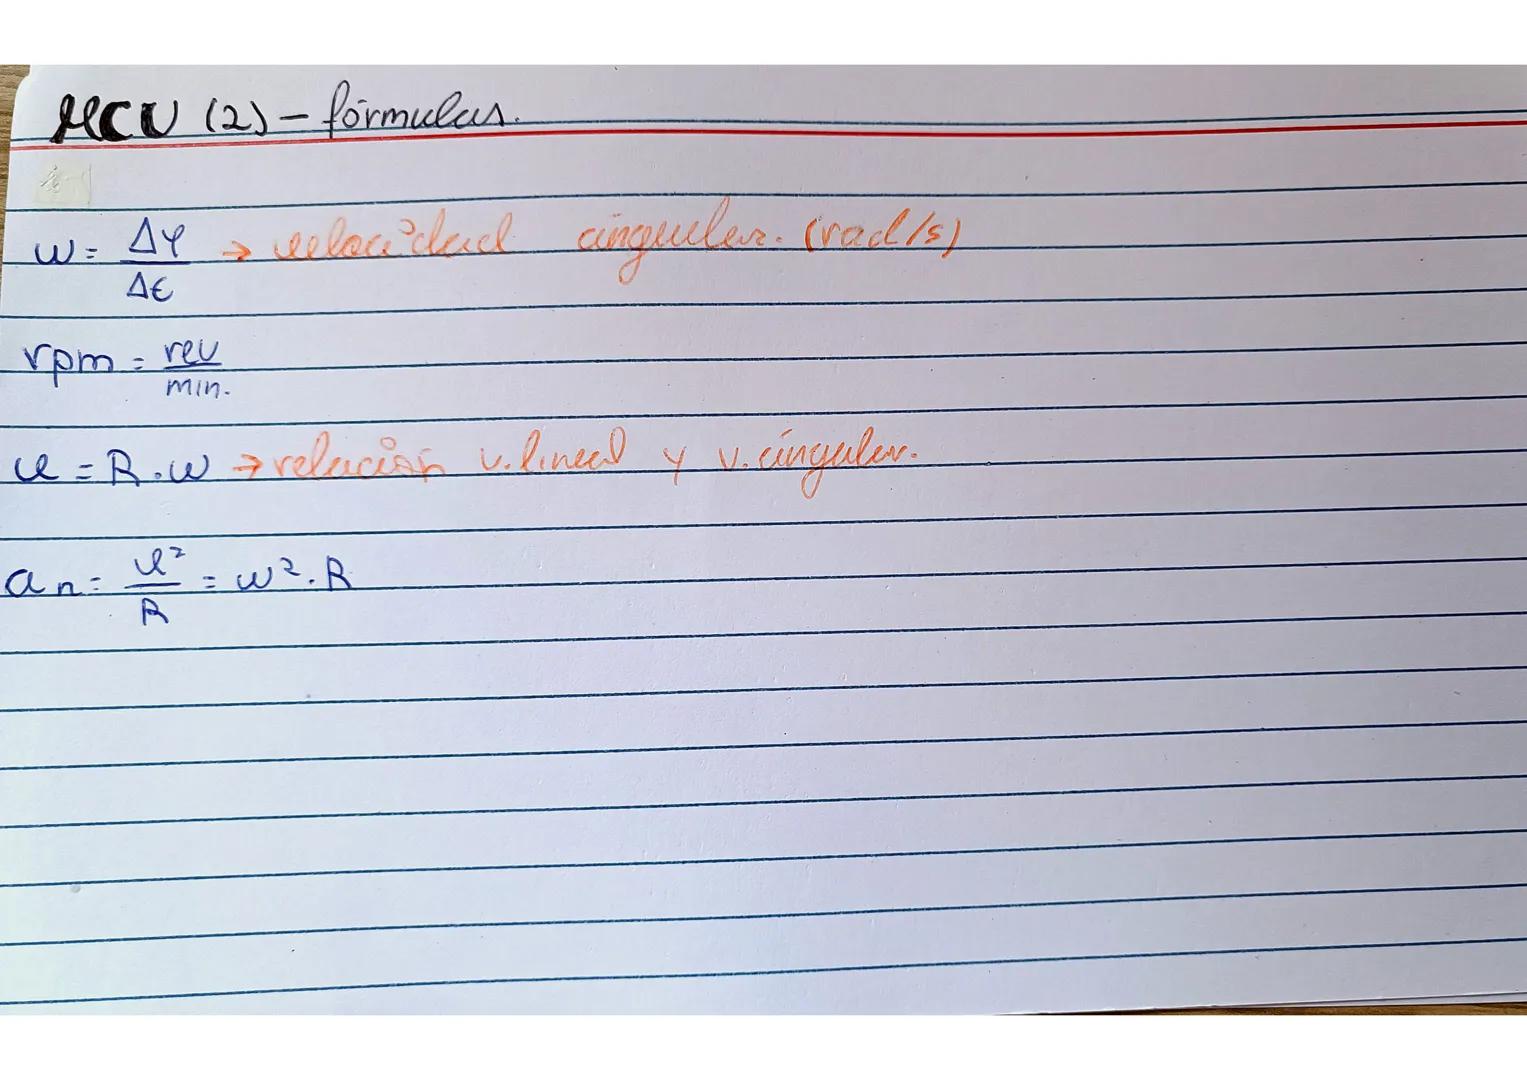 MCU (2) - fórmulas.
w = Δφ / Δt → velocidad angular. (rad/s)
rpm = rev / min.
v = R · w → relación v. lineal y v. angular.
an = v² / R = w² · R